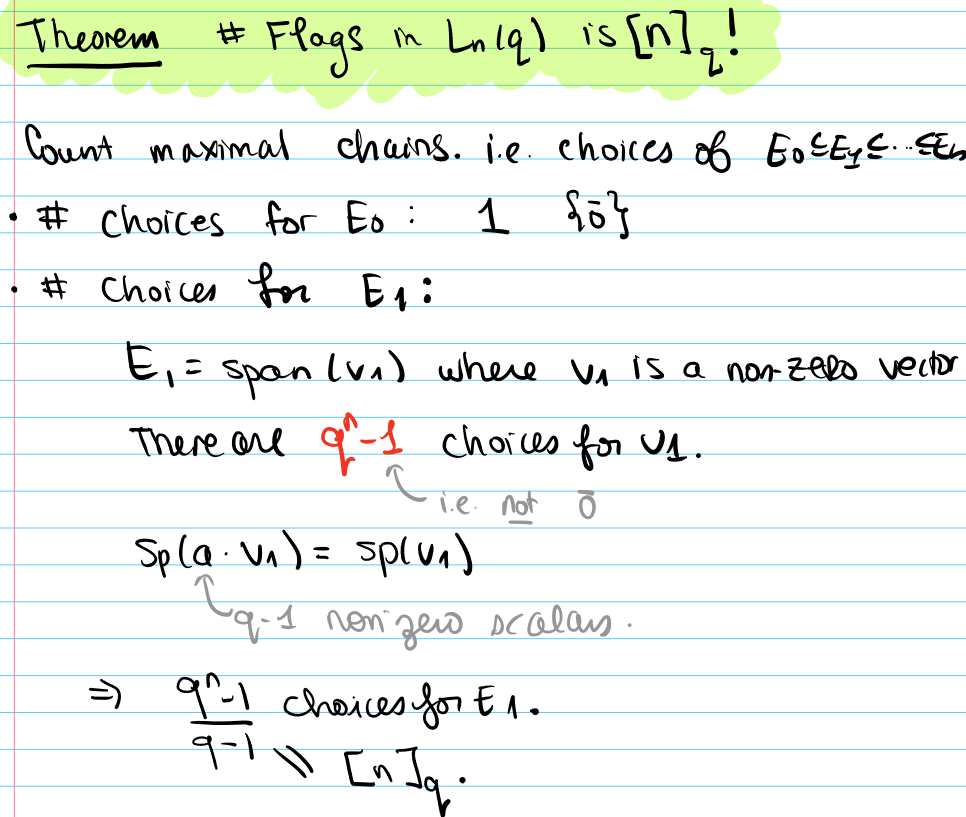 Theorem # Flags in Ln(q) is [n]q!
Count maximal chains. i.e. choices of E0⊆E1⊆...⊆En
• # choices for E0 : 1 {ō}
• # Choices for E1 :
E1 = span(v1) where v1 is a non-zero vector
There are qⁿ-1 choices for v1.
i.e. not ō
Sp(a·v1) = sp(v1)
q-1 non zero scalars.
⇒ qⁿ-1/q-1 choices for E1.
\\ [n]q.